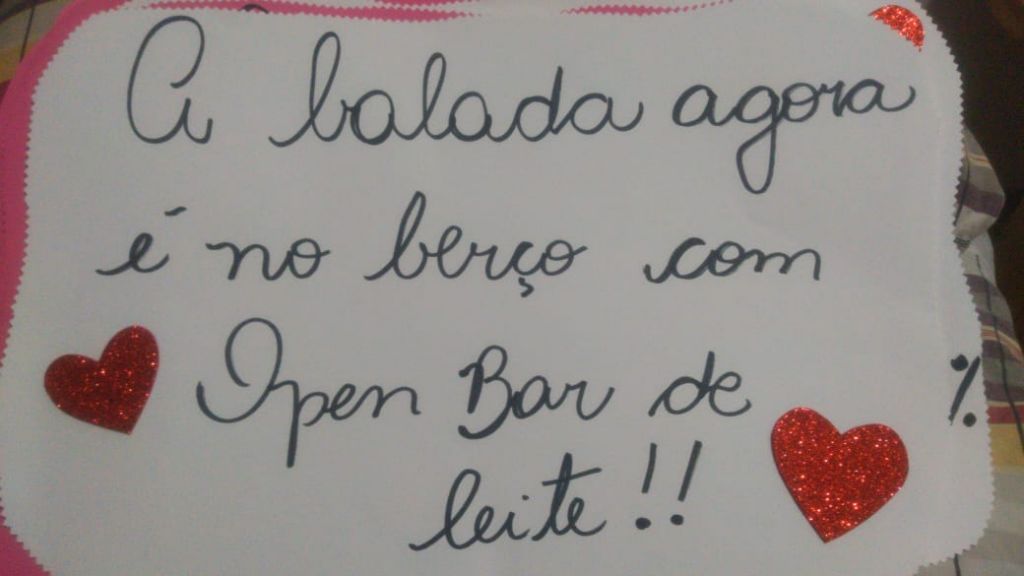 A balada agora
é no berço com
Open Bar de
leite!!